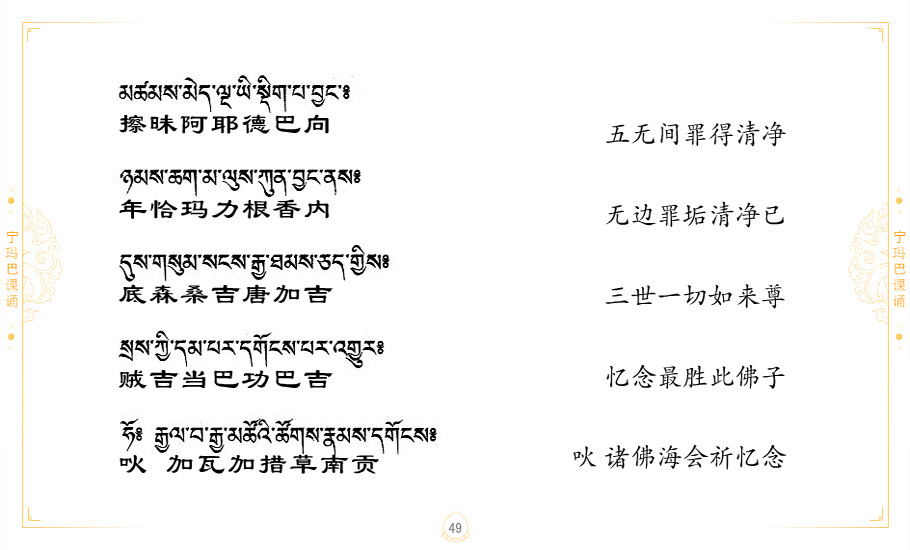 མཚམས་མེད་ལྔ་ཡི་སྡིག་པ་བྱང་༔
擦昧阿耶德巴向
五无间罪得清净
ཉམས་ཆག་མ་ལུས་ཀུན་བྱང་ནས༔
年恰玛力根香内
无边罪垢清净已
དུས་གསུམ་སངས་རྒྱ་ཐམས་ཅད་ཀྱིས༔
底森桑吉唐加吉
三世一切如来尊
སྲས་ཀྱི་དམ་པར་དགོངས་པར་འགྱུར༔
贼吉当巴功巴吉
忆念最胜此佛子
ཧོ༔ རྒྱལ་བ་རྒྱ་མཚོའི་ཚོགས་རྣམས་དགོངས༔
吙 加瓦加措草南贡
吙 诸佛海会祈忆念
宁玛巴课诵
宁玛巴课诵
49